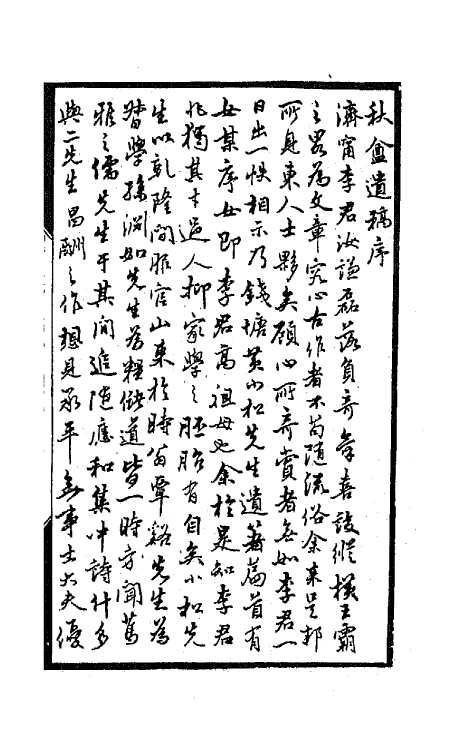 秋盦遺稿序
濟甯李君汝謙磊落負奇氣喜談縱橫王霸
之略為文章究心古作者不苟隨流俗余來是邦
所見東人士夥矣顧心所奇賞者無如李君一
日出一帙相示乃錢塘黃小松先生遺著篇首有
女某序女即李君高祖母也余於是知李君
非獨其才過人抑家學之胚胎有自矣小松先
生以乾隆間服官山東於時翁覃谿先生為
督學孫淵如先生為糧儲道皆一時方聞篤
雅之儒先生于其間追隨應和集中詩什多
與二先生昌酬之作想見承平無事士大夫優